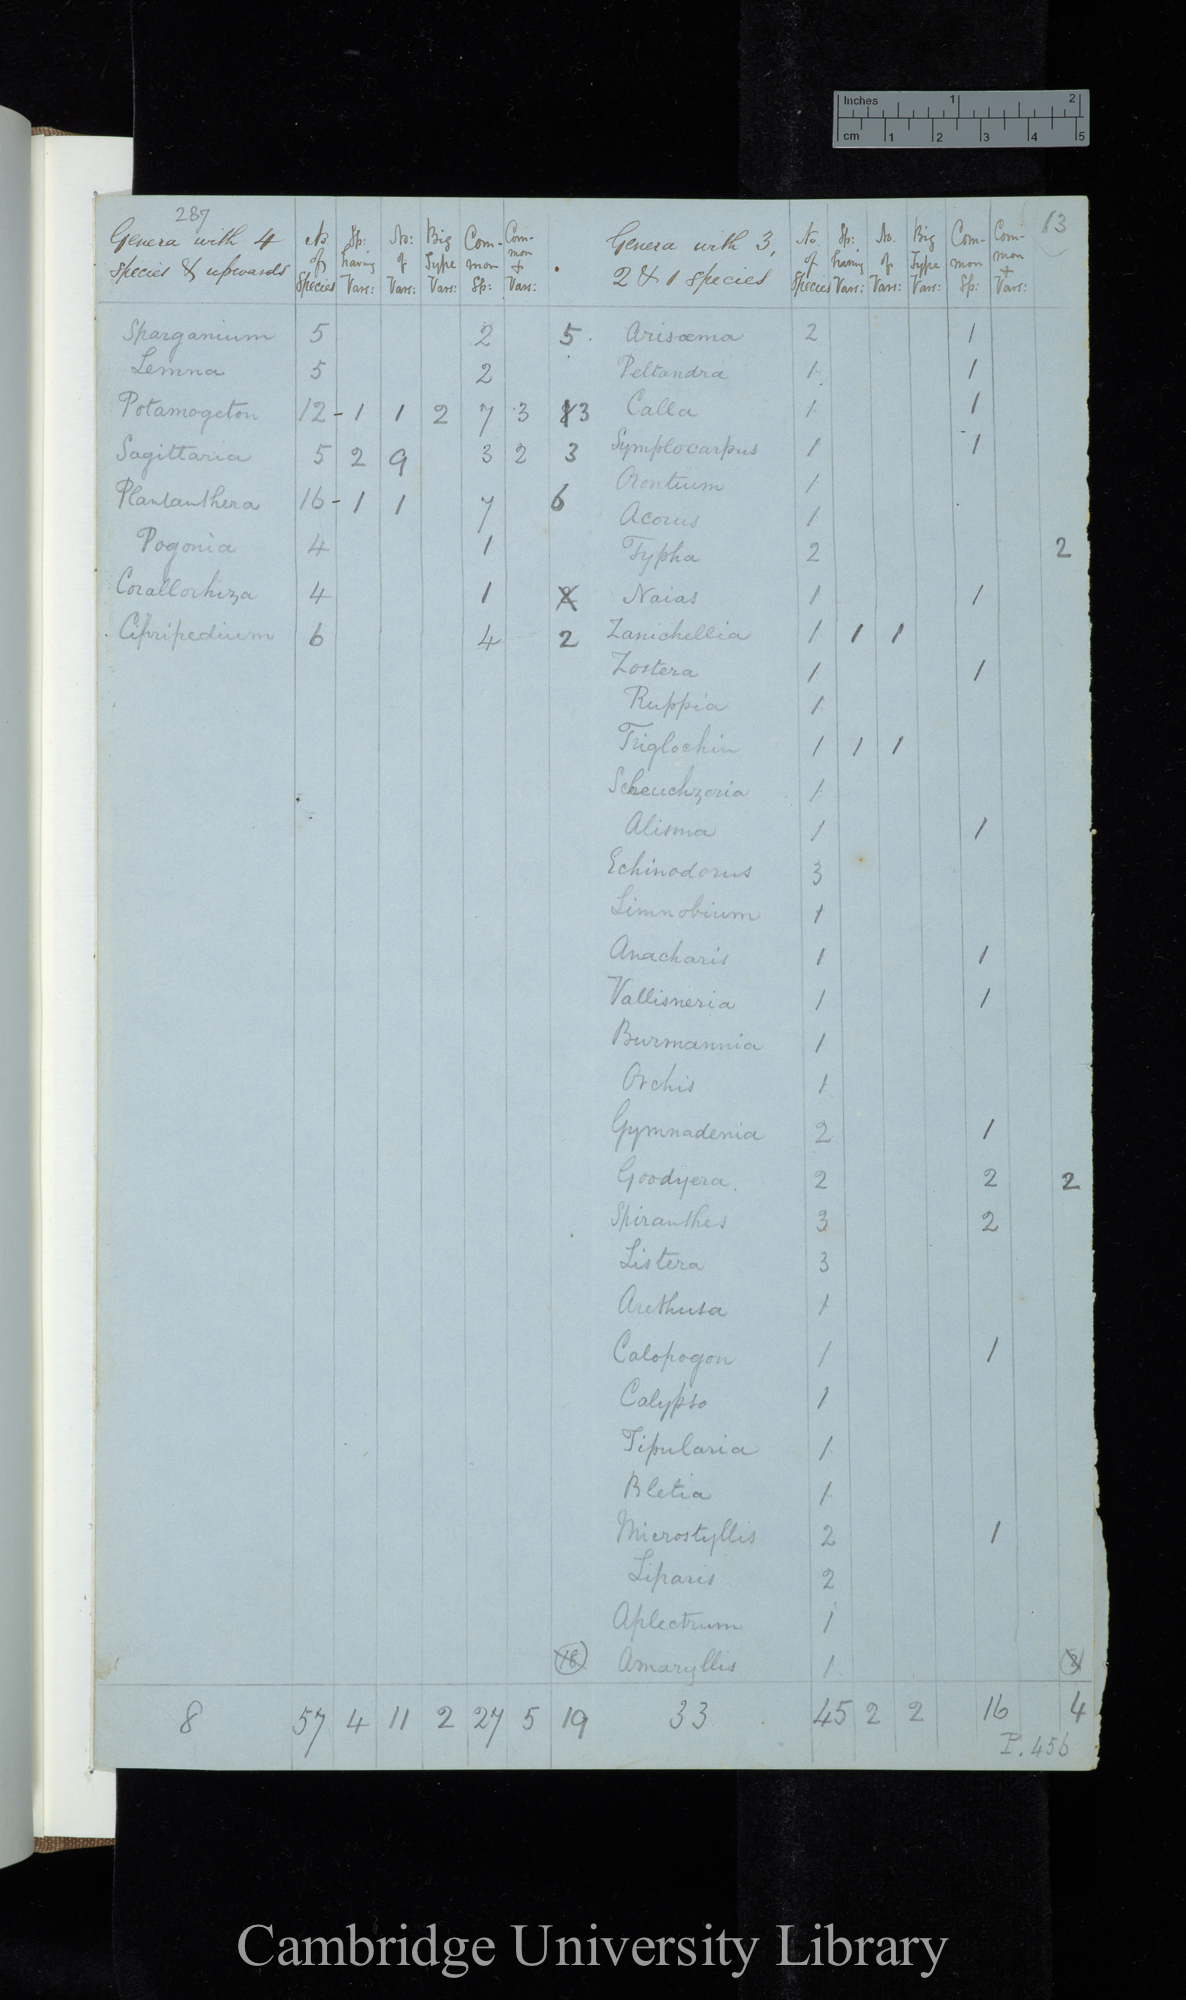 Inches 1 2
cm 1 2 3 4 5
287
13
Genera with 4 species & upwards | No of Species | Sp: having Vars: | No: of Vars: | Big Type Vars: | Common Sp: | Common + Vars: | Genera with 3, 2 & 1 species | No. of Species | Sp: having Vars: | No. of Vars: | Big Type Vars: | Common Sp: | Common + Vars:
Sparganium 5 2 5. Arisæma 2 1
Lemna 5 2 Peltandra 1 1
Potamogeton 12 - 1 1 2 7 3 3 Calla 1 1
Sagittaria 5 2 9 3 2 3 Symplocarpus 1 1
Orontium 1
Plantanthera 16 - 1 1 7 6
Acorus 1
Pogonia 4 1 Typha 2 2
Corallorhiza 4 1 2 Naias 1 1
Cipripedium 6 4 2 Zanichellia 1 1 1
Zostera 1 1
Ruppia 1
Triglochin 1 1 1
Scheuchzeria 1
Alisma 1 1
Echinodorus 3
Limnobium 1
Anacharis 1 1
Vallisneria 1 1
Burmannia 1
Orchis 1
Gymnadenia 2 1
Goodyera. 2 2 2
Spiranthes 3 2
Listera 3
Arethusa 1
Calopogon 1 1
Calypso 1
Tipularia 1
Bletia 1
Microstyllis 2 1
Liparis 2
Aplectrum 1
18 Amaryllis 1
8 57 4 11 2 27 5 19 33 45 2 2 16 4
P. 456
Cambridge University Library